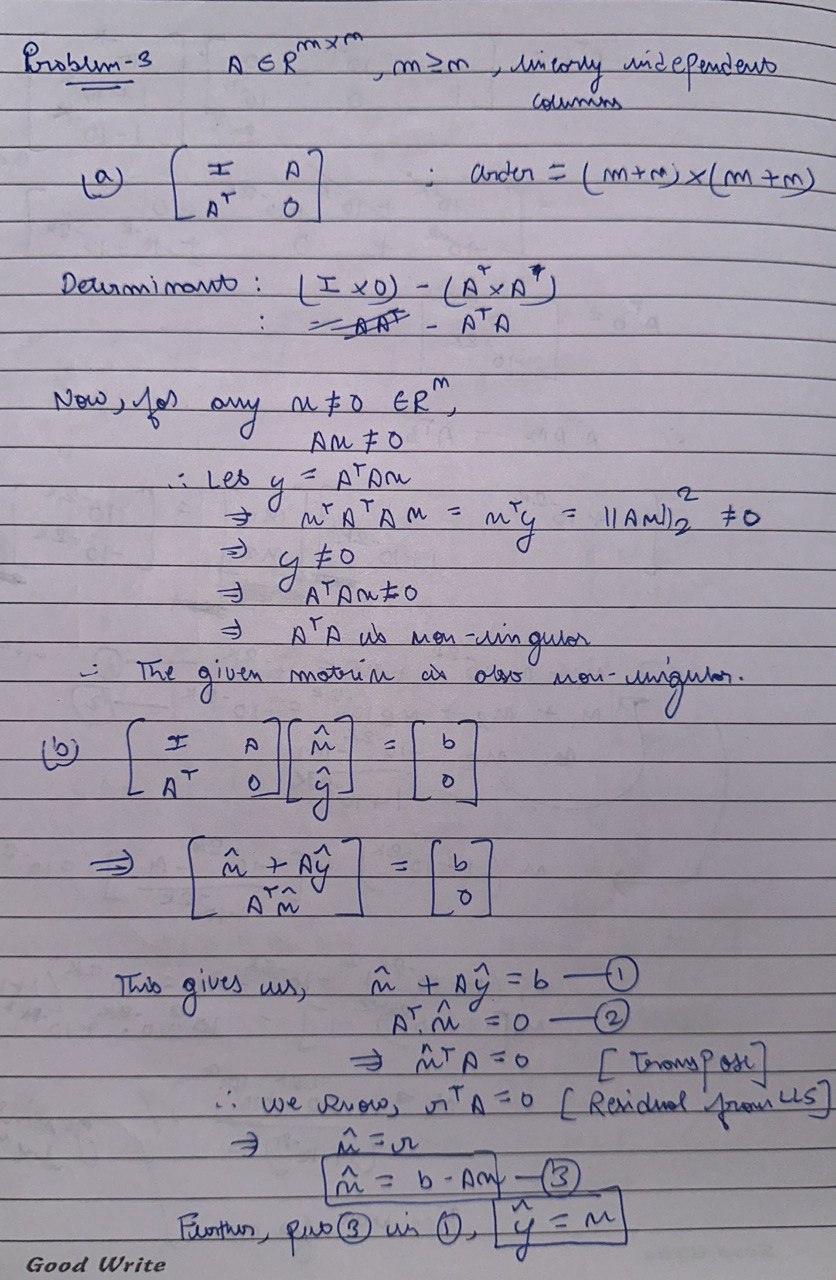 Problem-3 A ∈ R^{m×n}, m ≥ n, linearly independent
columns
(a) [ I A ; A^T 0 ] : order = (m+n)×(m+n)
Determinant : (I × 0) - (A^T × A)
: - A^T A
Now, for any x ≠ 0 ∈ R^n,
Ax ≠ 0
∴ Let y = A^T A x
⇒ x^T A^T A x = x^T y = ||Ax||_2^2 ≠ 0
⇒ y ≠ 0
⇒ A^T A x ≠ 0
⇒ A^T A is non-singular
∴ The given matrix is also non-singular.
(b) [ I A ; A^T 0 ] [ x̂ ; ŷ ] = [ b ; 0 ]
⇒ [ x̂ + Aŷ ; A^T x̂ ] = [ b ; 0 ]
This gives us, x̂ + Aŷ = b — ①
A^T. x̂ = 0 — ②
⇒ x̂^T A = 0 [Transpose]
∴ we know, r^T A = 0 [Residual from LLS]
⇒ x̂ = r
x̂ = b - Ax — ③
Further, put ③ in ①, ŷ = x
Good Write